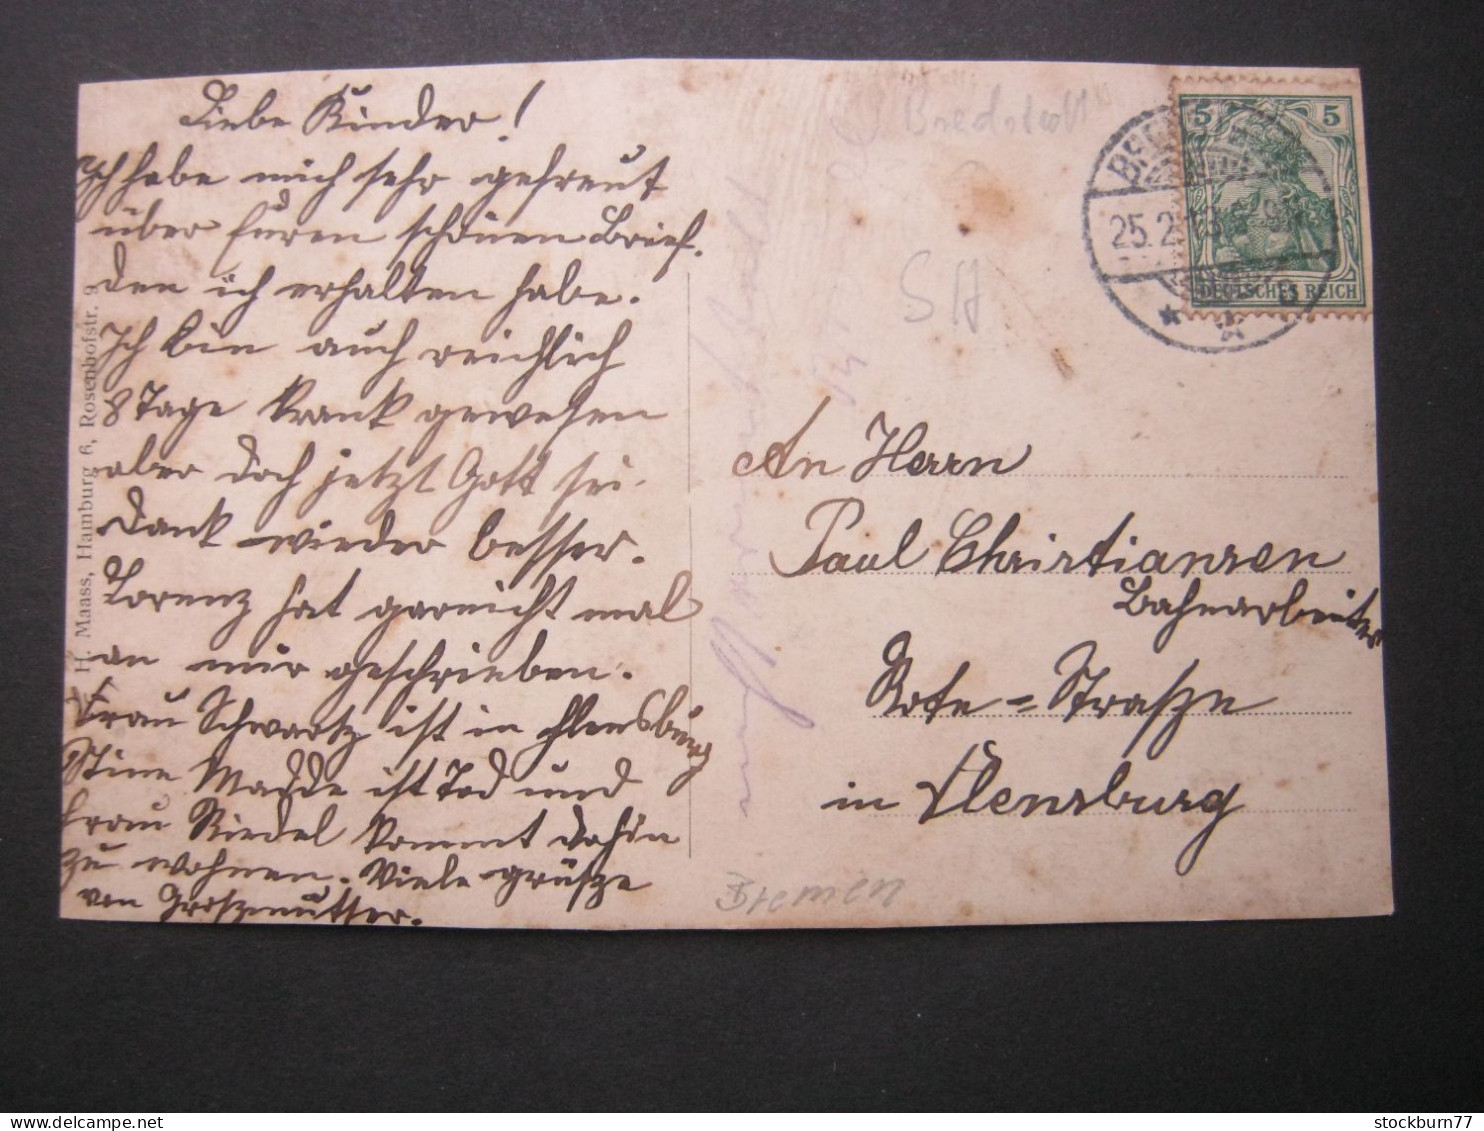 Liebe Kinder!
Ich habe mich sehr gefreut
über Euren schönen Brief.
den ich erhalten habe.
Ich bin auch reichlich
8 Tage krank gewesen
aber doch jetzt Gott sei
Dank wieder besser.
Lorenz hat garnicht mal
an mir geschrieben.
Frau Schwartz ist in Flensburg
Stine Madde ist Tod und
Frau Riedel kommt dahin
zu wohnen. Viele grüsze
von Groszmutter.
H. Maass, Hamburg 6, Rosenhofstr. 9
Bredstedt
SH
5 5
DEUTSCHES REICH
25.2.13
An Herrn
Paul Christiansen
Bahnarbeiter
Rote-Strasze
in Flensburg
Bremen
stockburn77